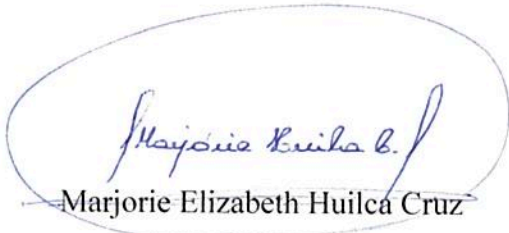 Marjorie Huilca C.
Marjorie Elizabeth Huilca Cruz